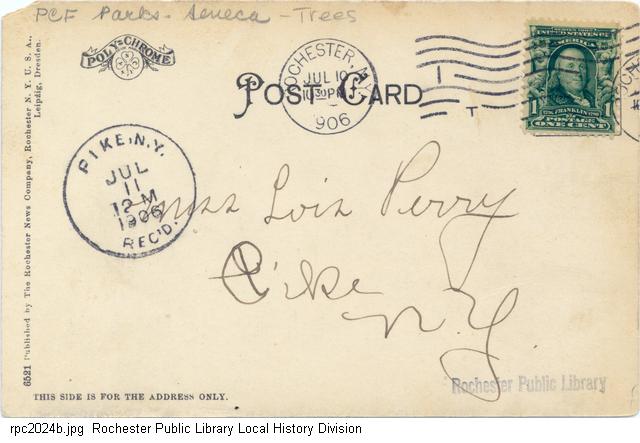 PCF Parks - Seneca - Trees
POLY-CHROME
ROCHESTER, N.Y.
JUL 10
1030PM
1906
POST CARD
UNITED STATES OF AMERICA
1
1
POSTAGE
ONE CENT
PIKE, N.Y.
JUL
11
12 M
1906
REC'D.
Miss Lois Perry
Pike
N.Y.
6521 Published by The Rochester News Company, Rochester N. Y. U. S. A.,
Leipzig, Dresden.
Rochester Public Library
THIS SIDE IS FOR THE ADDRESS ONLY.
rpc2024b.jpg Rochester Public Library Local History Division